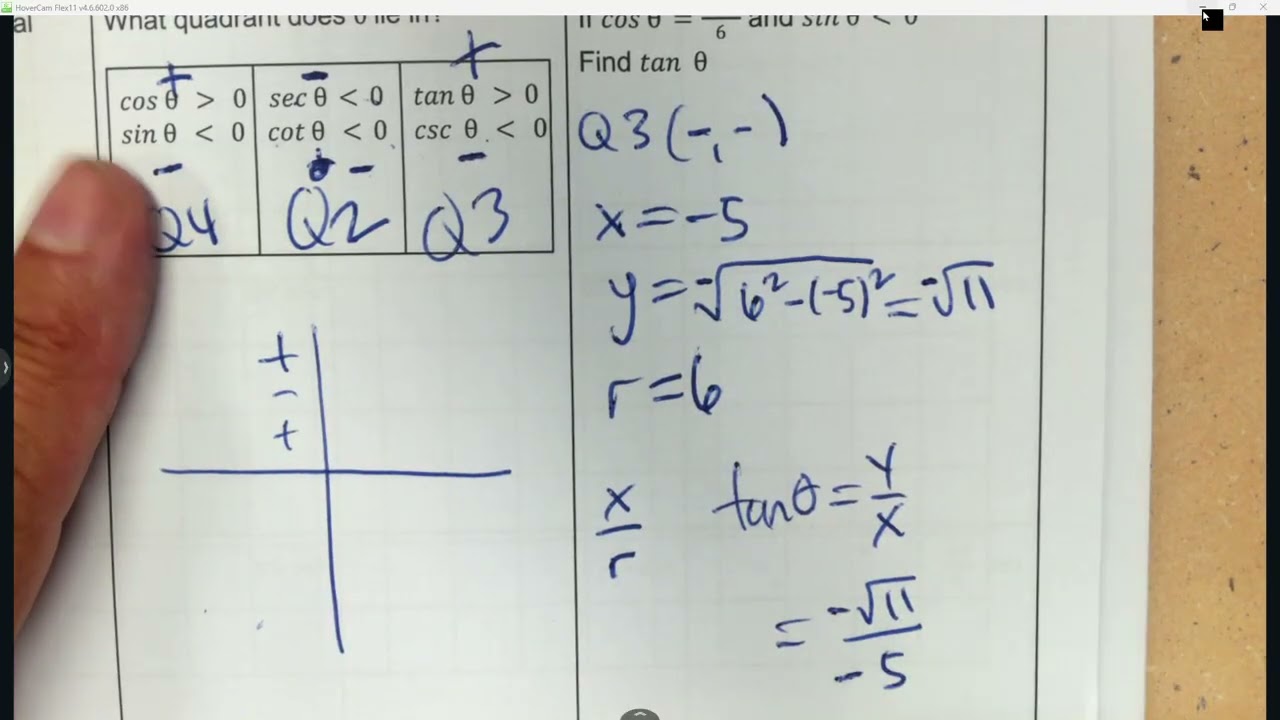 HoverCam Flex11 v4.6.602.0 x86
al
What quadrant does θ lie in?
+ - +
cos θ > 0 sec θ < 0 tan θ > 0
sin θ < 0 cot θ < 0 csc θ < 0
- - -
Q4 Q2 Q3
+
-
+
If cos θ = /6 and sin θ < 0
Find tan θ
Q3 (-, -)
x = -5
y = -√(6² - (-5)²) = -√11
r = 6
x/r
tan θ = y/x
= -√11/-5